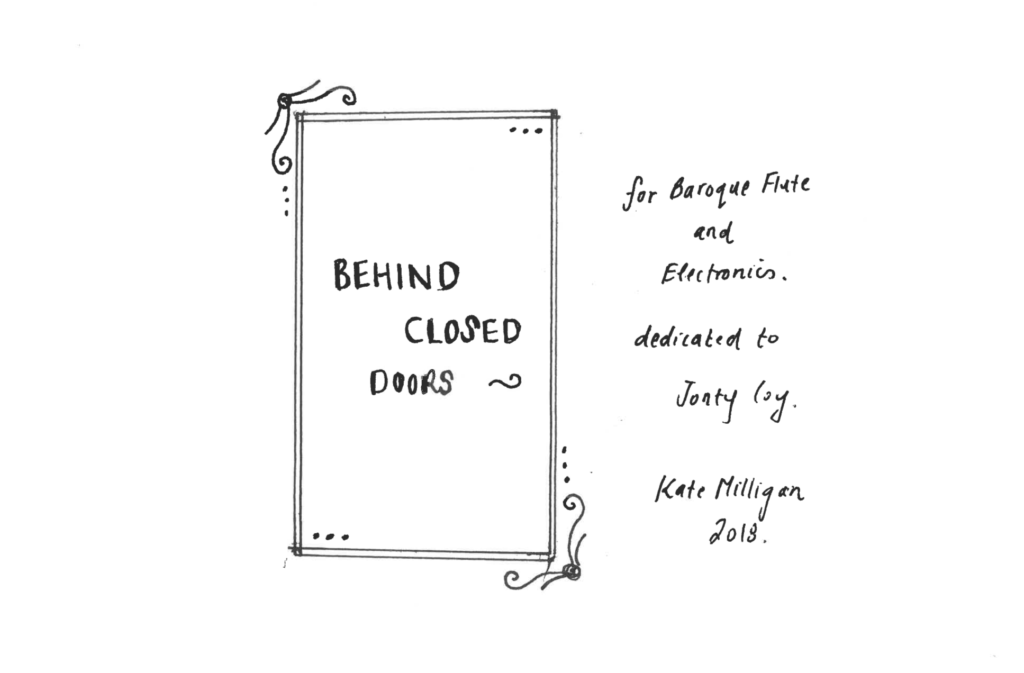 BEHIND
CLOSED
DOORS ~
for Baroque Flute
and
Electronics.
dedicated to
Jonty Coy.
Kate Milligan
2018.